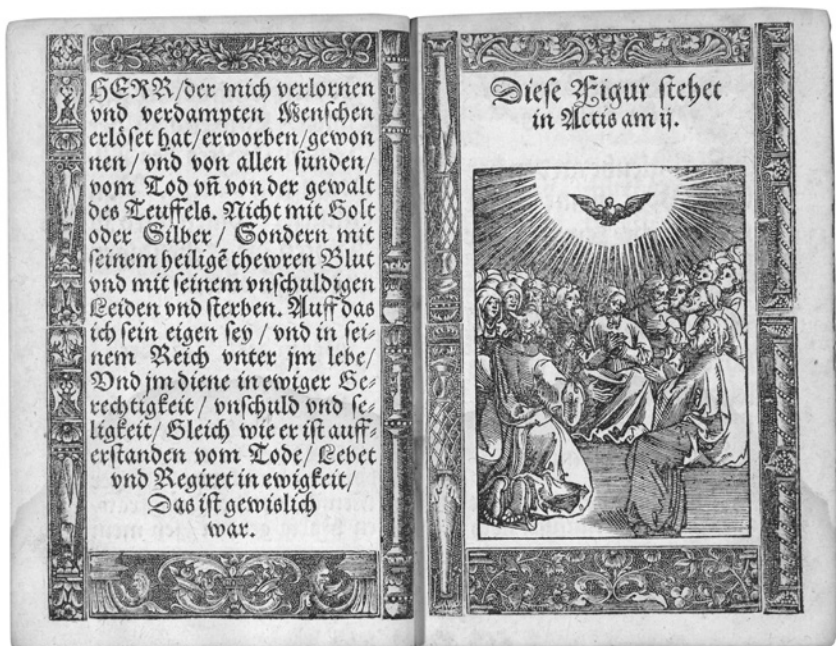 HERR/der mich verlornen
vnd verdampten Menschen
erlöset hat/erworben/gewon
nen/ vnd von allen sunden/
vom Tod vñ von der gewalt
des Teuffels. Nicht mit Golt
oder Silber/ Sondern mit
seinem heiligẽ thewren Blut
vnd mit seinem vnschuldigen
Leiden vnd sterben. Auff das
ich sein eigen sey / vnd in sei-
nem Reich vnter jm lebe/
Vnd jm diene in ewiger Ge-
rechtigkeit/ vnschuld vnd se-
ligkeit/ Gleich wie er ist auff-
erstanden vom Tode/ Lebet
vnd Regiret in ewigkeit/
Das ist gewislich
war.
Diese Figur stehet
in Actis am ij.